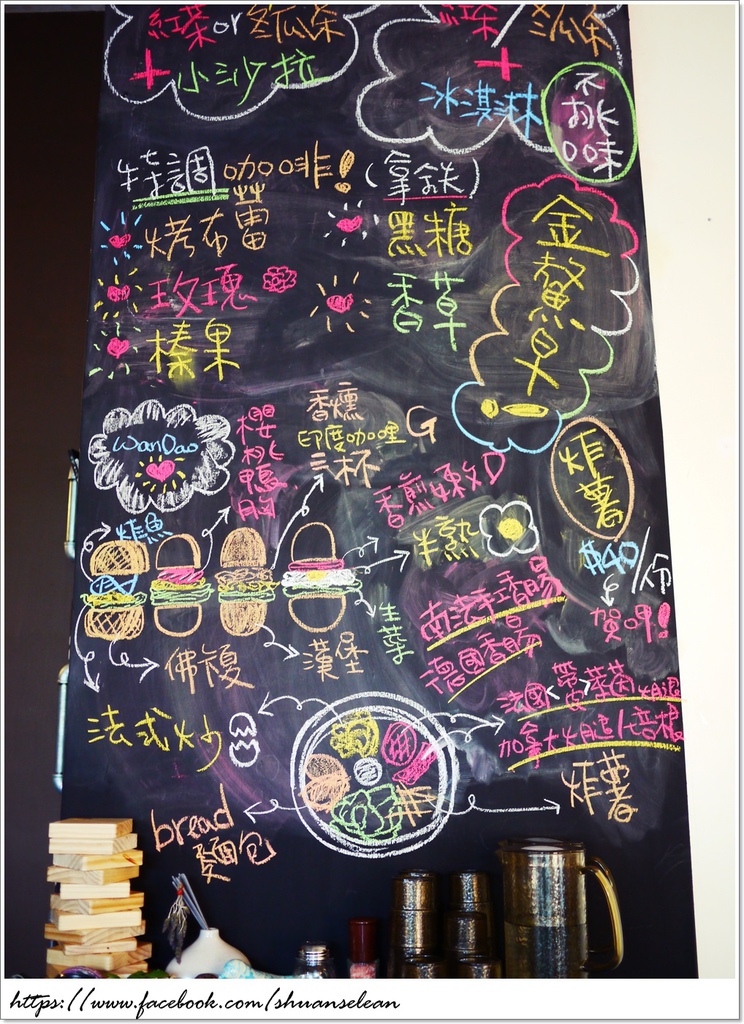 紅茶or冬瓜茶
+小沙拉
紅茶 冬瓜茶
+
冰淇淋
不挑口味
特調咖啡!(拿鐵)
烤布蕾
黑糖
玫瑰
香草
榛果
金鰲早
WanDao
櫻桃鴨胸
香燻
印度咖哩G
三杯
香煎嫩D
炸薯
$40/份
賀呷!
炸魚
半熟
生菜
南法羊香腸
德國香腸
佛
漢堡
法式炒
法國<帶皮>萊茵火腿
加拿大火腿/培根
炸薯
bread
麵包
https://www.facebook.com/shuanselean